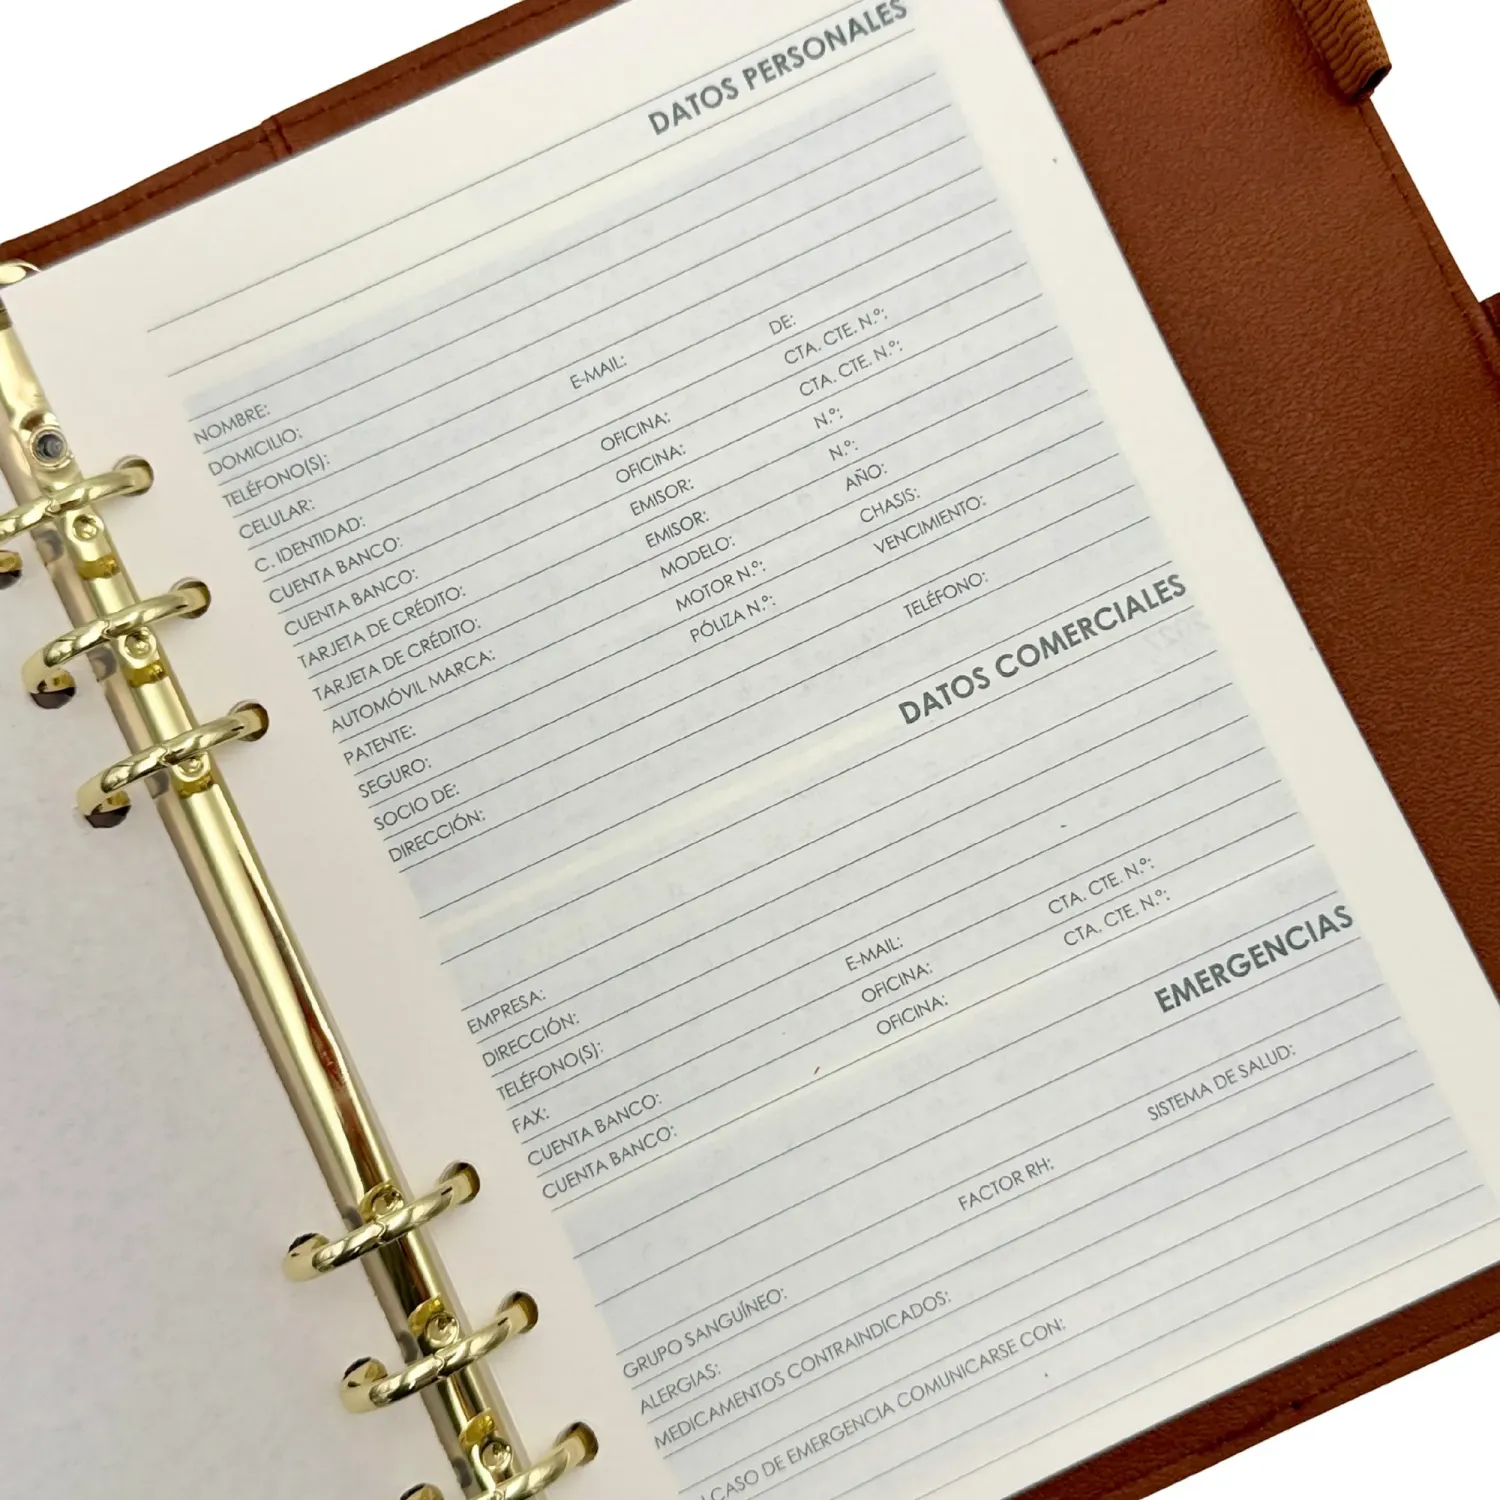 DATOS PERSONALES
NOMBRE:
DOMICILIO:
TELÉFONO(S):
CELULAR: E-MAIL:
C. IDENTIDAD: DE:
CUENTA BANCO: OFICINA: CTA. CTE. N.º:
CUENTA BANCO: OFICINA: CTA. CTE. N.º:
TARJETA DE CRÉDITO: EMISOR: N.º:
TARJETA DE CRÉDITO: EMISOR: N.º:
AUTOMÓVIL MARCA: MODELO: AÑO:
PATENTE: MOTOR N.º: CHASIS:
SEGURO: PÓLIZA N.º: VENCIMIENTO:
SOCIO DE:
DIRECCIÓN: TELÉFONO:
DATOS COMERCIALES
EMPRESA:
DIRECCIÓN:
TELÉFONO(S):
FAX: E-MAIL:
CUENTA BANCO: OFICINA: CTA. CTE. N.º:
CUENTA BANCO: OFICINA: CTA. CTE. N.º:
EMERGENCIAS
GRUPO SANGUÍNEO: FACTOR RH: SISTEMA DE SALUD:
ALERGIAS:
MEDICAMENTOS CONTRAINDICADOS:
CASO DE EMERGENCIA COMUNICARSE CON: